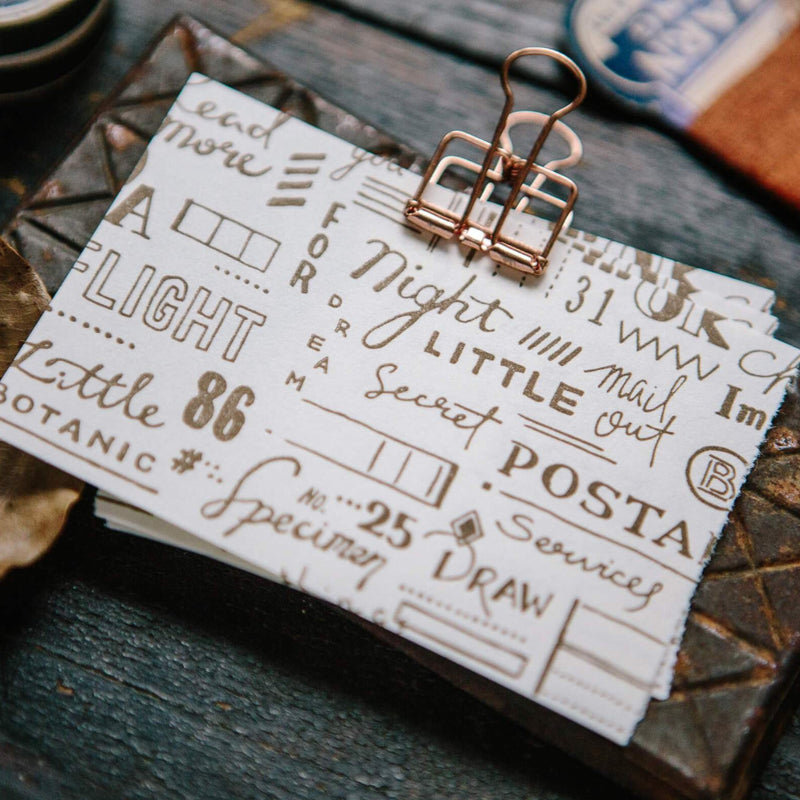 read
more
you
A
FOR
DREAM
FLIGHT
Night
LITTLE
31
mail
out
Little
86
Secret
BOTANIC
#
POSTA
Im
B
Specimen
No. 25
Services
DRAW